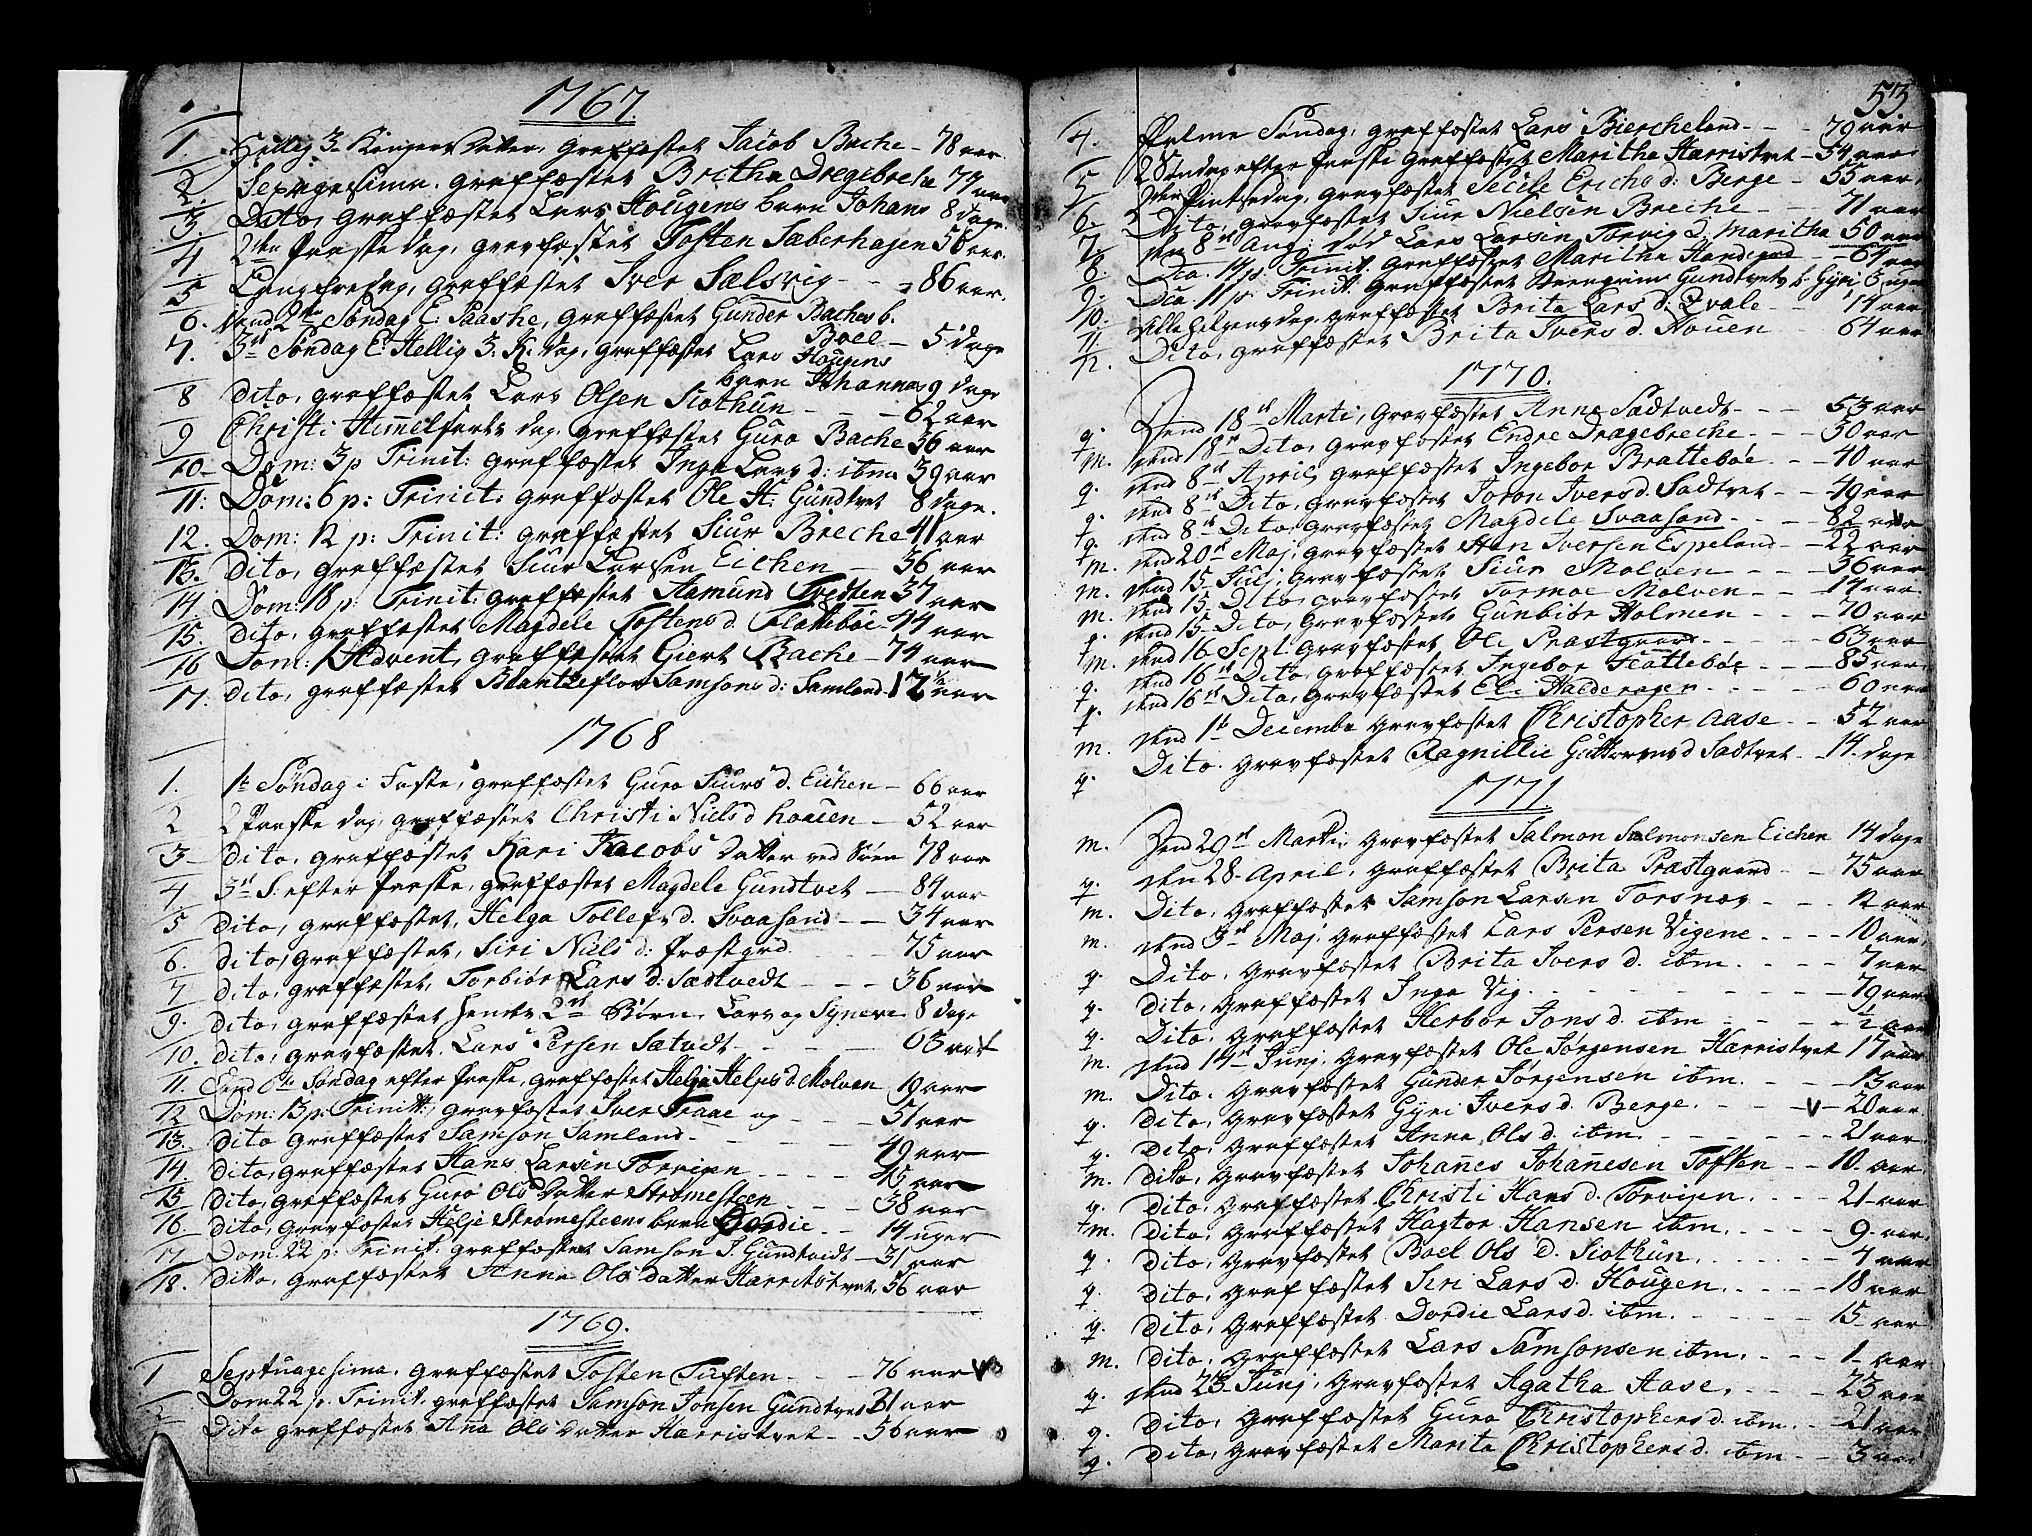 1767.
1. Hellig 3 Kongers Dætter, Graffæstet Jacob Bache - 78 aar.
2. Septagesima. Graffæstet Britha Dregebreche 77 aar
3. Dito, Graffæstet Lars Hougens barn Johans 8 dage.
4. 2den Paaskedag, Gravfæstet Tosten Sæberhagen 58 aar.
5 Langfredag, Graffæstet Iver Sælsvig - - 86 aar.
6. dend 2den Søndag E: Paaske, Graffæstet Gunder Baches b.
Boel - 5 dage
7. 3de Søndag E: Hellig 3. K. Dag, Graffæstet Lars Hougens
barn Johannes 9 dage
8 Dito, Graffæstet Lars Olsen Siothun - - 62 aar
9 Christi Himmelfarts dag. Graffæstet Guro Bache 56 aar
10 Dom: 3 p Trinit: Graffæstet Inga Lars d: ibm 39 aar
11: Dom: 6 p: Trinit: Graffæstet Ole St: Gundtvet 8 dage.
12. Dom: 12 p: Trinit: Graffæstet Siur Breche 41 aar
13. Dito, Graffæstet Siur Larsen Eichen - 36 aar
14. Dom: 18 p: Trinit: Graffæstet Aamund Tvedten 37 aar
15. Dito, Graffæstet Magdele Tostens d. Flattebøe 44 aar
16 Dom: 1 Advent, Graffæstet Giert Bache - 74 aar
17. Dito, Graffæstet Blantzeflor Samsons d: Samland. 12 1/2 aar
1768
1. 1te Søndag i Faste, Graffæstet Guro Siurs d. Eichen - 66 aar
2 2 Paaske dag, Graffæstet Christi Niels d houen - 52 aar
3 Dito, Graffæstet Kari Jacobs datter ved Søen 78 aar
4. 3de S: efter Paaske, Graffæstet Magdele Gundtvet - 84 aar
5 Dito, Graffæstet, Helga Tollefs d. Svaasand - - 34 aar
6. Dito, Graffæstet, Siri Niels d: Præstgrd - - 75 aar
7 Dito, Graffæstet, Torbiør Lars d: Sædtvedt - - - 36 aar
9. Dito, Graffæstet hendes 2de Børn, Lars og Syneve 8 dage
10. Dito, Gravfæstet. Lars Persen Sætvedt - - 63 aar
11. Dend 6te Søndag efter Paaske, Graffæstet Helje Heljes d. Molven 19 aar
12 Dom: 13 p: Trinitt:, Gravfæstet Iver Traae og - - 51 aar
13. Dito Graffæstet Samson Samland - - - 49 aar
14 Dito, Graffæstet Hans Larsen Torvigen - - 45 aar
15 Dito, Graffæstet Guro Ols datter Strømesteen - - 38 aar
16. Dito, Gravfæstet Helje Strømesteens barn Gordie - - 14 uger
17. Dom. 22 p: Trinit: Graffæstet Samson J. Gundtvedt - 31 aar
18. Ditto. Graffæstet Anna Ols datter Harritstvet, 56 aar
1769.
1 Septuagesima. Graffæstet Tosten Tuften - - - 76 aar
2 Dom 22 p. Trinit. Graffæstet Samson Jonsen Gundtvet 31 aar
Dito Graffæstet Ana Ols datter Harristvet - - 56 aar
53
4. Palme Søndag, Graffæstet Lars Biercheland - - - 79 aar
5 2 Søndag efter Paaske Graffæstet Maritha Harristvet - 54 aar
2den Pintsedag, Gravfæstet Secile Erichs d: Berge - 55 aar.
6. Dito, Gravfæstet Siur Nielsen Breche - - 71 aar
7. den 8de Aug: død Lars Larsen Torvig d. Maritha 50 aar
8. Dca. 14 p. Trinit. Graffæstet Maritha Handegrd - 64 aar
9. Dca 11 p. Trinit. Graffæstet Gundtvets b. Gyri 3 uger
10. Alle Helgens dag, Graffæstet Brita Lars d: Qvale - - 14 aar
11 Dito, Graffæstet Brita Ivers d. Houen 64 aar
12.
1770.
q. Dend 18de Marti, Gravfæstet Anne Sædtvedt - - - 53 aar
m. dend 18de Dito, Gravfæstet Endre Drægebreche - - - 30 aar
q. dend 8de April, Graffæstet Ingebor Brattebøe - - 40 aar
q. dend 8de Dito, Gravfæstet Joron Ivers d. Sædtvet - - 49 aar
q. dend 8de Dito, Gravfæstet Magdele Svaasand - - - 82 aar
m. dend 20de Maj, Gravfæstet Hen Iversen Espeland - - 22 aar
m. dend 15. Julj, Gravfæstet Siur Molven - - - 36 aar
m. dend 15. Dito, Gravfæstet Tormoe Molven - - - 14 aar.
q. dend 15. Dito, Gravfæstet Gunbiør Holmen - - 70 aar
m. dend 16. Sept: Gravfæstet, Ole Præstgaard - - - 63 aar
q. dend 16de Dito, Graffæstet Ingebor Flattebøe - - 85 aar
q. dend 16de Dito, Gravfæstet Eli Haldorager - - - 60 aar
m. dend 1te Decembr Gravfæstet Christopher Aase - - 52 aar
q. Dito. Gravfæstet Ragnillie Guttorms d Sædtvet - 14. dage
1771.
m. Dend 29de Marti; Gravfæstet Salmon Salmonsen Eichen 14 dage
q. den 28. April, Graffæstet Brita Præstgaard - - 75 aar
m. Dito, Graffæstet Samson Larsen Torsnæs - - - 12 aar
m. dend 3de Maj, Graffæstet Lars Persen Vigene - - - - 10 aar,
q. Dito, Gravfæstet Brita Ivers d. ibm - - - - 7 aar
q. Dito, Graffæstet Inga Vig. - - - - - - 79 aar
q. Dito, Graffæstet Herbor Jons d. ibm - - - - 1/2 aar
m. dend 14de Junj, Gravfæstet Ole Jørgensen Harristvet 17 aar
m. Dito. Gravfæstet Gunder Jørgensen ibm. - - - 13 aar
q. Dito, Gravfæstet Gyri Ivers d. Berge. - - - v - 20 aar
q. Dito, Graffæstet Anna Ols d. ibm. - - - - 21 aar
m. Dito, Gravfæstet Johañes Johañesen Toften - - 10. aar
q. Dito, Graffæstet, Christi Hans d. Torvigen. - - - 21 aar
m. Dito, Graffæstet Hagtor Hansen ibm. - - - 9. aar.
q. Dito, Graffæstet Boel Ols d. Siothun. - - - - 7 aar
q. Dito, Graffæstet Siri Lars d. Hougen. - - - - 18 aar
q. Dito, Graffæstet Dordie Lars d. ibm. - - - - 15 aar
m. Dito, Graffæstet Lars Samsonsen ibm. - - - 1 aar
q. dend 23. Junj, Gravfæstet Agatha Aase. - - - 23 aar
q. Dito, Graffæstet Guro Christophers d. ibm. - - 21 aar
q. Dito, Gravfæstet Marita Christophers d. ibm - - 3 aar